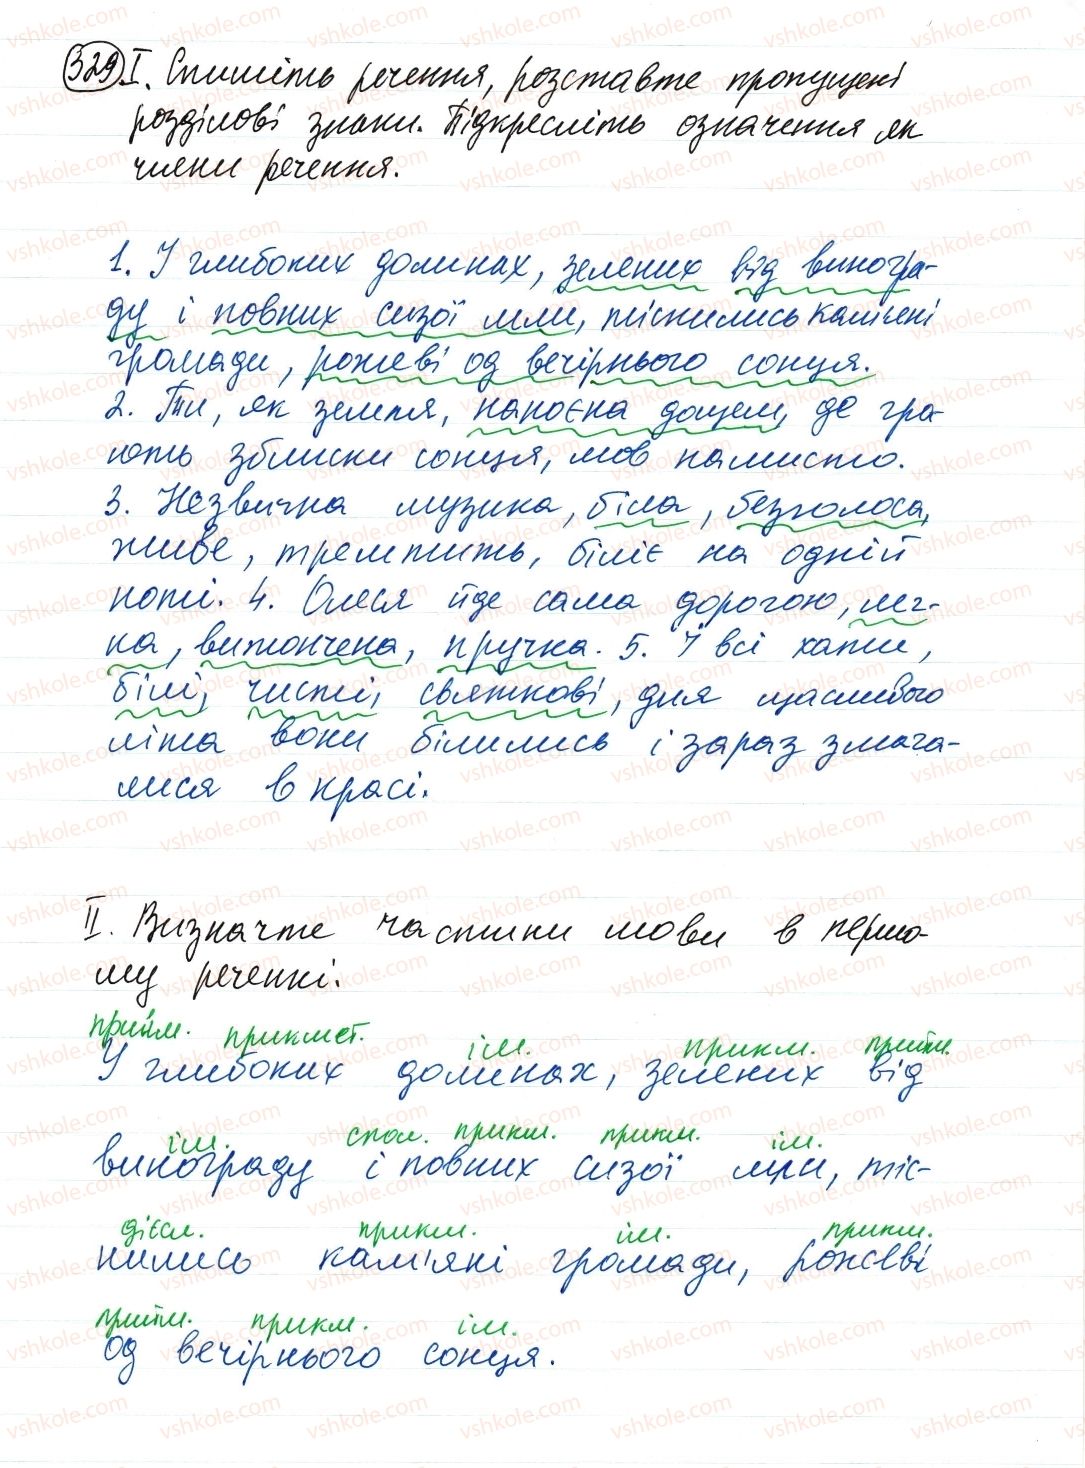 329 I. Спишіть речення, розставте пропущені
розділові знаки. Підкресліть означення як
члени речення.
1. У глибоких долинах, зелених від виногра-
ду і повних сизої мли, тіснились кам'яні
громади, рожеві од вечірнього сонця.
2. Ти, як земля, напоєна дощем, де гра-
ють зблиски сонця, мов намисто.
3. Незвична музика, біла, безголоса,
живе, тремтить, біліє на одній
ноті. 4. Олеся йде сама дорогою, лег-
ка, витончена, пручка. 5. І всі хати,
білі, чисті, святкові, для щасливого
літа вони білились і зараз змага-
лися в красі.
II. Визначте частини мови в першо-
му реченні.
прийм. прикмет. ім. прикм. прийм.
У глибоких долинах, зелених від
ім. спол. прикм. прикм. ім.
винограду і повних сизої мли, тіс-
дієсл. прикм. ім. прикм.
нились кам'яні громади, рожеві
прийм. прикм. ім.
од вечірнього сонця.